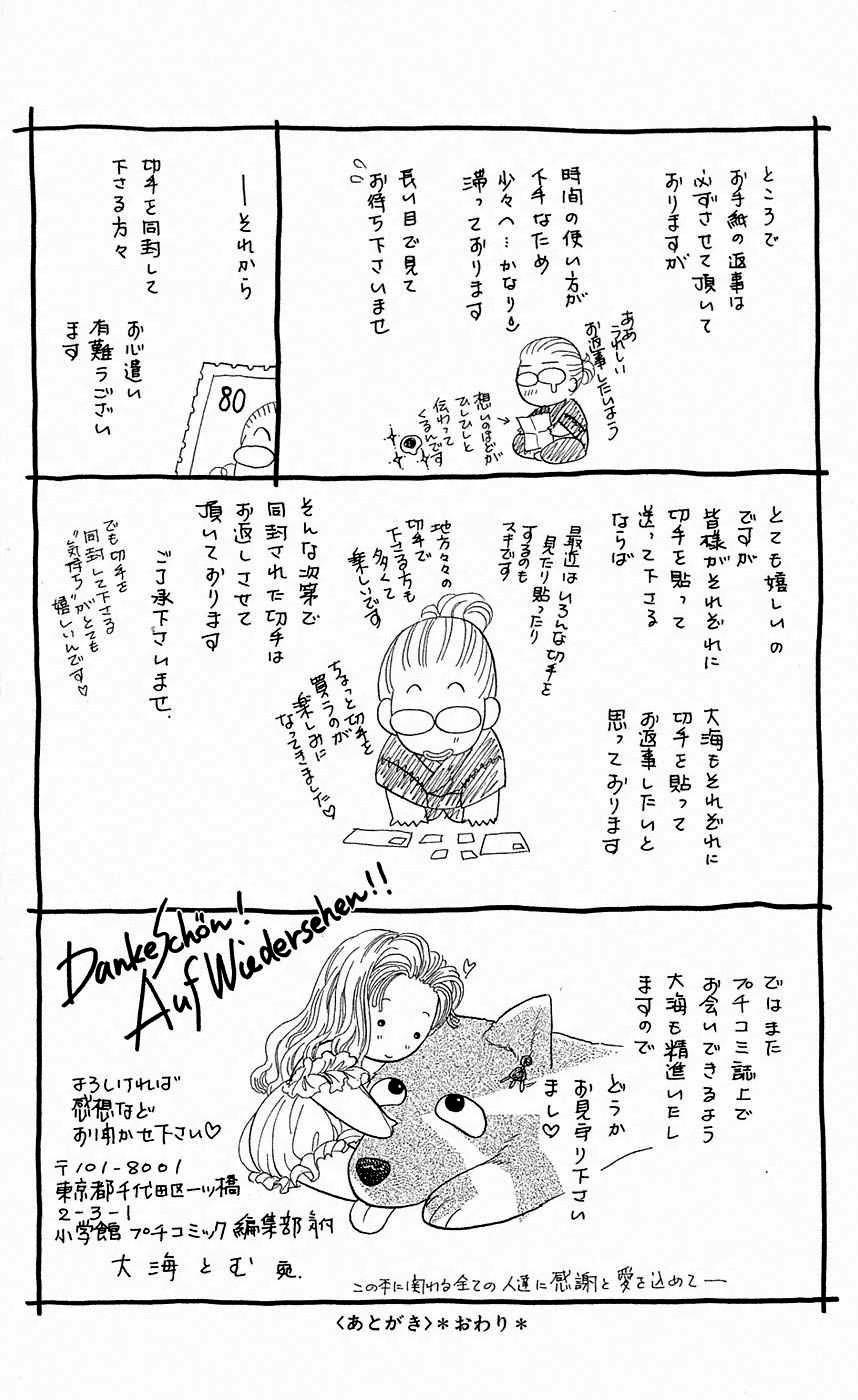 ところで
お手紙の返事は
必ずさせて頂いて
おりますが
時間の使い方が
下手なため
少々へ…かなり
滞っております
長い目で見て
お待ち下さいませ
ああ
うれしい
お返事したいよう
想いのほどが
ひしひしと
伝わって
くるんです
―それから
切手を同封して
下さる方々
お心遣い
有難うござい
ます
80
とても嬉しいの
ですが
皆様がそれぞれに
切手を貼って
送って下さる
ならば
大海もそれぞれに
切手を貼って
お返事したいと
思っております
最近はいろんな切手を
見たり貼ったり
するのも
スキです
地方々々の
切手で
下さる方も
多くて
楽しいです
ちょっと切手を
買うのが
楽しみに
なってきました♡
そんな次第で
同封された切手は
お返しさせて
頂いております
ご了承下さいませ.
でも切手を
同封して下さる
"気持ち"がとても
嬉しいんです♡
ではまた
プチコミ誌上で
お会いできるよう
大海も精進いたし
ますので
どうか
お見守り下さい
まし♡
Danke Schön!
Auf Wiedersehen!!
よろしければ
感想など
お聞かせ下さい♡
〒101-8001
東京都千代田区一ッ橋
2-3-1
小学館 プチコミック 編集部気付
大海とむ 宛.
この本に関わる全ての人達に感謝と愛を込めて―
〈あとがき〉＊おわり＊